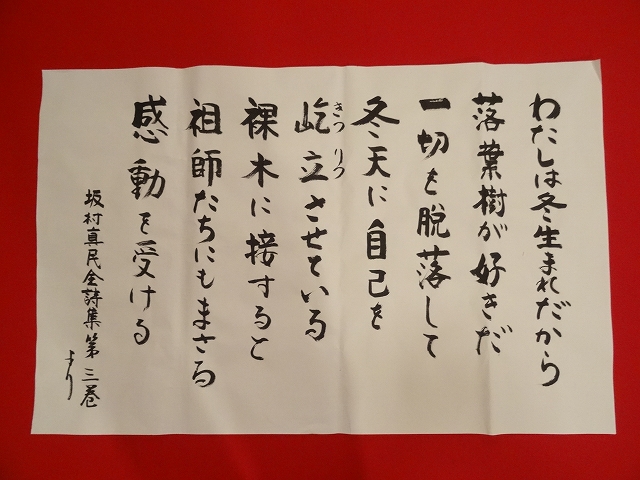 わたしは冬生まれだから
落葉樹が好きだ
一切を脱落して
冬天に自己を
屹立させている
きつ りつ
裸木に接すると
祖師たちにもまさる
感動を受ける
坂村真民全詩集第三巻
より